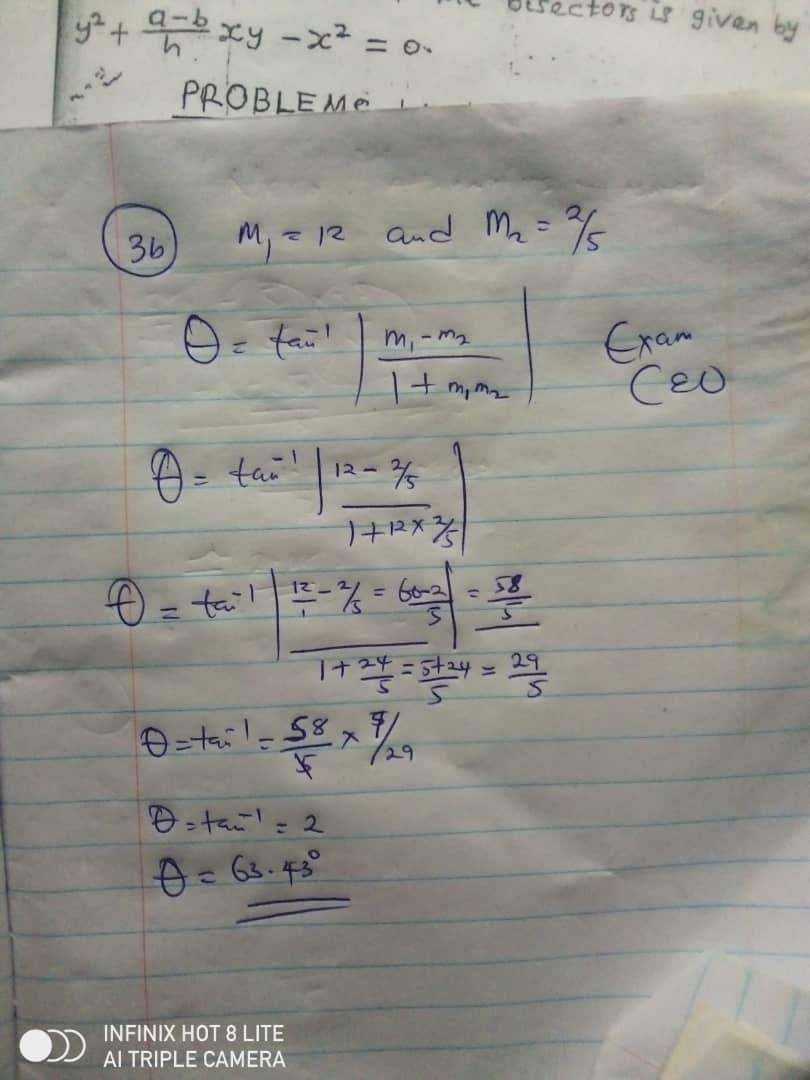 bisectors is given by
y² + a-b/h xy - x² = 0.
PROBLEMS
3b m₁ = 12 and m₂ = 2/5
θ = tan⁻¹ | m₁ - m₂ / 1 + m₁m₂ | Exam
CEO
θ = tan⁻¹ | 12 - 2/5 / 1 + 12 × 2/5 |
θ = tan⁻¹ | 12/1 - 2/5 = 60-2/5 | = 58/5
1 + 24/5 = 5+24/5 = 29/5
θ = tan⁻¹ = 58/5 × 5/29
θ = tan⁻¹ = 2
θ = 63.43°
INFINIX HOT 8 LITE
AI TRIPLE CAMERA